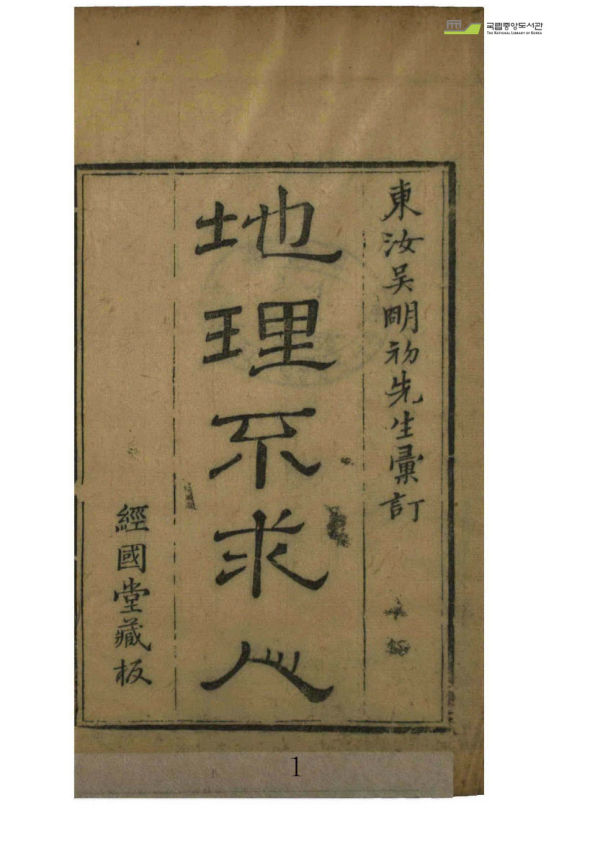 국립중앙도서관
THE NATIONAL LIBRARY OF KOREA
東汝吴明初先生彙訂
地理不求人
經國堂藏板
1